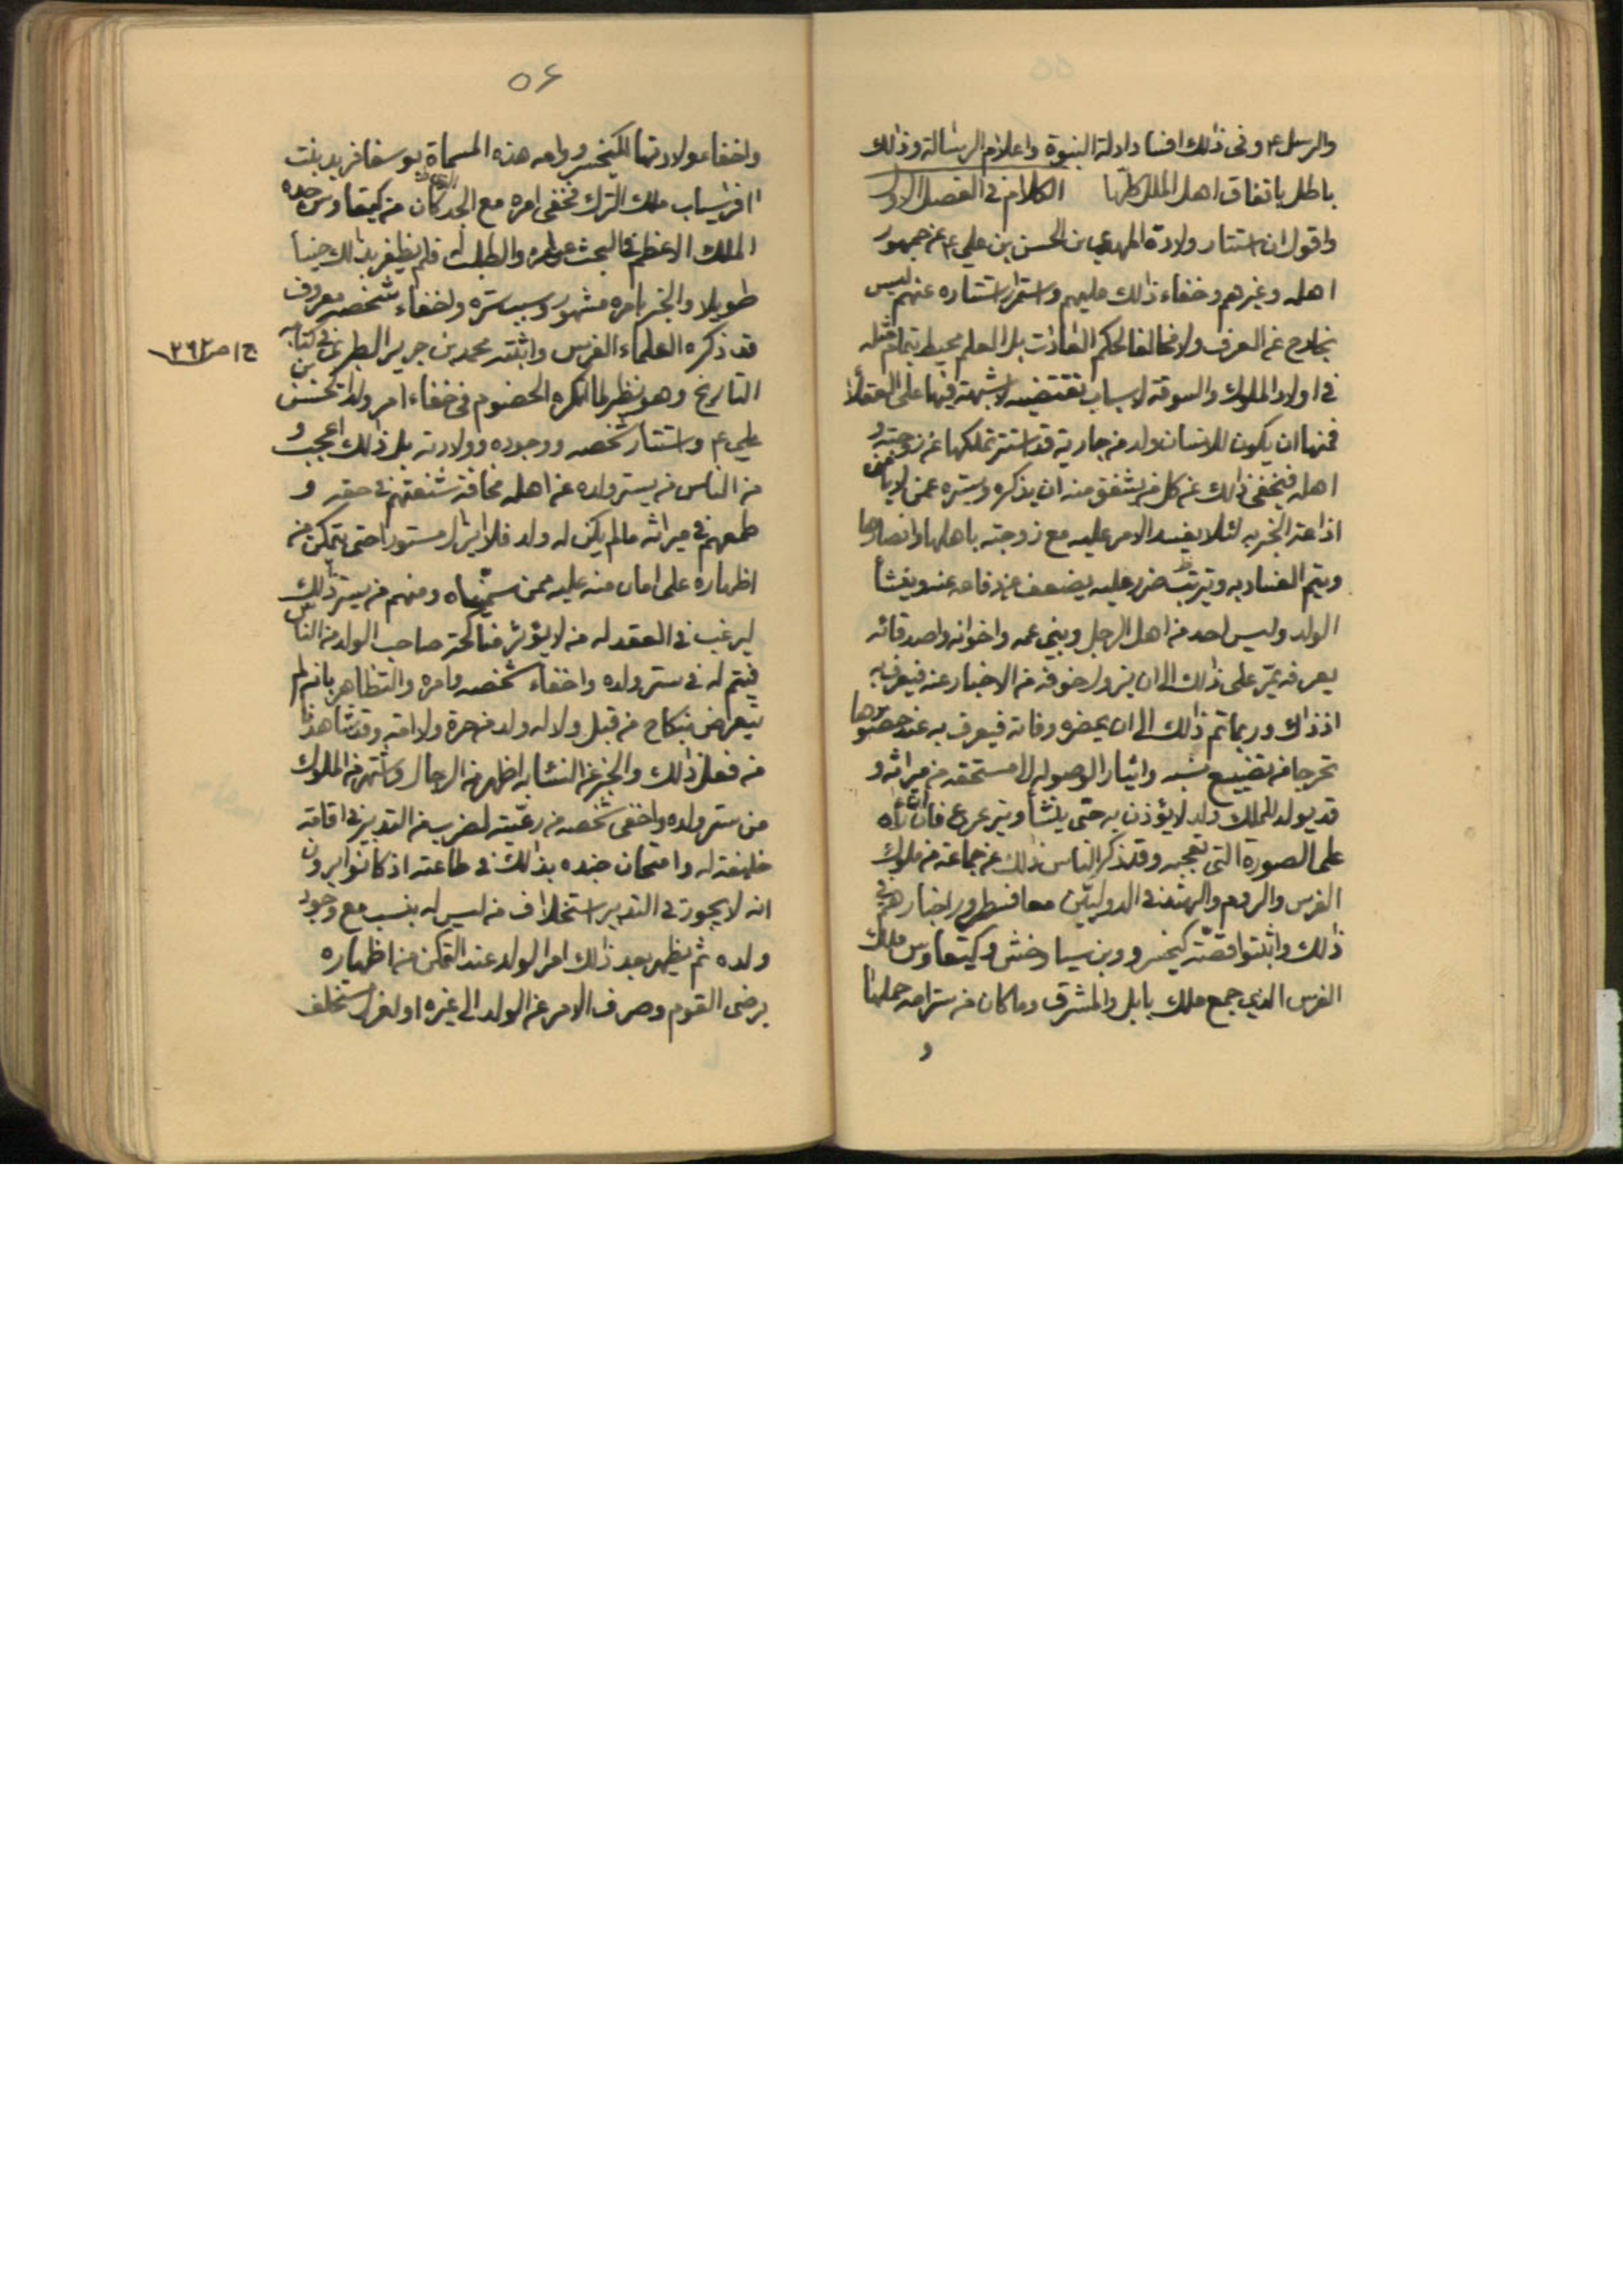 والرسل ع و فى ذلك افساد ادلة النبوة واعلام الرسالة وذلك
باطل باتفاق اهل الملل كلها الكلام فى الفصل الاول
واقول ان استتار ولادة المهدي بن الحسن بن علي ع عن جمهور
اهله وغيرهم وخفاء ذلك عليهم واستمرار استتاره عنهم ليس
بخارج عن العرف ولا مخالفا لحكم العادات بل العلم محيط بتمام مثله
فى اولاد الملوك والسوقة لاسباب تقتضيه لا شبهة فيها على العقلاء
فمنها ان يكون للانسان ولد من جارية قد استتر تملكها عن زوجته و
اهله فيخفى ذلك عن كل من يشفق منه ان يذكره ويستره عمن لا يأمن
اذاعة الخبر به لئلا يفسد الامر عليه مع زوجته باهلها وانصارها
ويتم الفساد به ويترتب ضرر عليه يضعف عن دفاعه عنه وينشأ
الولد وليس احد من اهل الرجل وبني عمه واخوانه واصدقائه
يعرفه يمر على ذلك الى ان يزول خوفه من الاخبار عنه فيعرف به
اذ ذاك وربما تم ذلك الى ان يحضره وفاته فيعرف به عند حضورها
تحرجا من تضييع نسبه وايثار الوصوله الى مستحقه من ميراثه و
قد يولد للملك ولد لا يؤذن به حتى ينشأ ويترعرع فان رأه
على الصورة التى تعجبه وقد ذكر الناس ذلك عن جماعة من ملوك
الفرس والروم والهند فى الدولتين معا فسطروا اخبارهم فى
ذلك واثبتوا قصة كيخسرو بن سياوخش و كيقاوس ملك
الفرس الذي جمع ملك بابل والمشرق وما كان من ستر امه حملها
و
٥٦
واخفاء ولادتها لكيخسرو وامه هذه المسماة بوسفافريد بنت
افراسياب ملك الترك فخفى امره مع الجد كان من كيقاوس جده
الملك الاعظم فى البحث عن امره والطلب له فلم يظفر بذلك حينا
طويلا والخبر بامره مشهور وسبب ستره واخفاء شخصه معروف
قد ذكره العلماء الفرس واثبته محمد بن جرير الطبري فى كتابه
ج١ ص٣٦٢
التاريخ وهو نظير لما انكره الخصوم فى خفاء امر ولد الحسن بن
علي ع واستتار شخصه ووجوده وولادته بل ذلك اعجب و
من الناس من يستر ولده عن اهله مخافة شنعتهم فى حقه و
طمعهم فى ميراثه ما لم يكن له ولد فلا يزال مستورا حتى يتمكن من
اظهاره على امان منه عليه ممن سميناه ومنهم من يستر ذلك
ليرغب فى العقد له من لا يؤثر مناكحة صاحب الولد من الناس
فيتم له فى ستر ولده واخفاء شخصه وامره والتظاهر بانه لم
يتعرض بنكاح من قبل ولا له ولد من حرة ولا امة وقد شاهدنا
من فعل ذلك والخبر عن النساء به اظهر من الرجال واشتهر من الملوك
من ستر ولده واخفى شخصه من رعيته لضرب من التدبير فى اقامة
خليفة له وامتحان جنده بذلك فى طاعته اذ كانوا يرون
انه لا يجوز فى التدبير استخلاف من ليس له بنسب مع وجود
ولده ثم يظهر بعد ذلك امر الولد عند التمكن من اظهاره
برضى القوم وصرف الامر عن الولد الى غيره او لعزل مستخلف